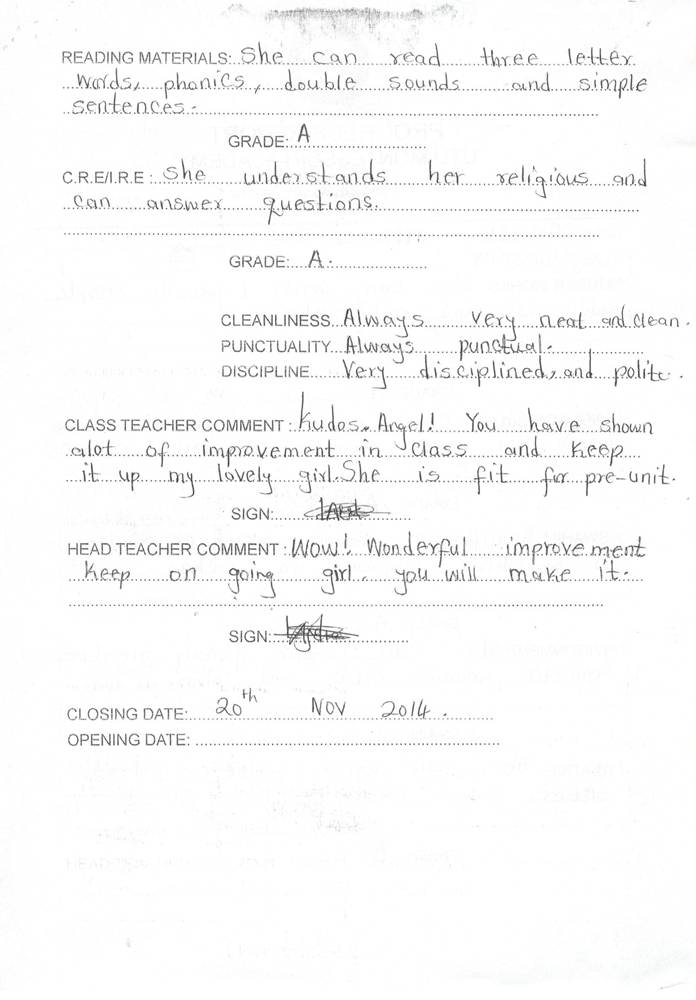 READING MATERIALS: She can read three letter
words, phonics, double sounds and simple
sentences.
GRADE: A
C.R.E/I.R.E : She understands her religious and
can answer questions.
GRADE: A.
CLEANLINESS Always very neat and clean.
PUNCTUALITY Always punctual.
DISCIPLINE Very disciplined, and polite.
CLASS TEACHER COMMENT : Kudos. Angel! You have shown
alot of improvement in class and keep
it up my lovely girl. She is fit for pre-unit.
SIGN:
HEAD TEACHER COMMENT : Wow! Wonderful improvement
keep on going girl. you will make it.
SIGN:
CLOSING DATE: 20th NOV 2014.
OPENING DATE: